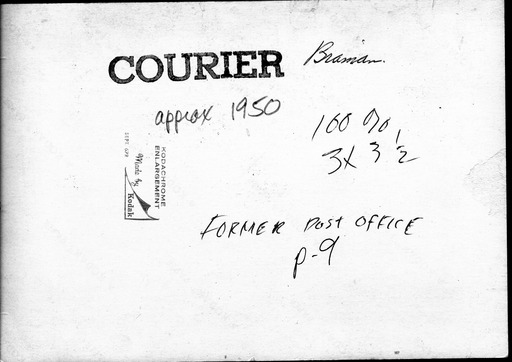 COURIER
Braman.
approx 1950
100 %
3X 3 1/2
KODACHROME
ENLARGEMENT
Made by
Kodak
FORMER POST OFFICE
p-9